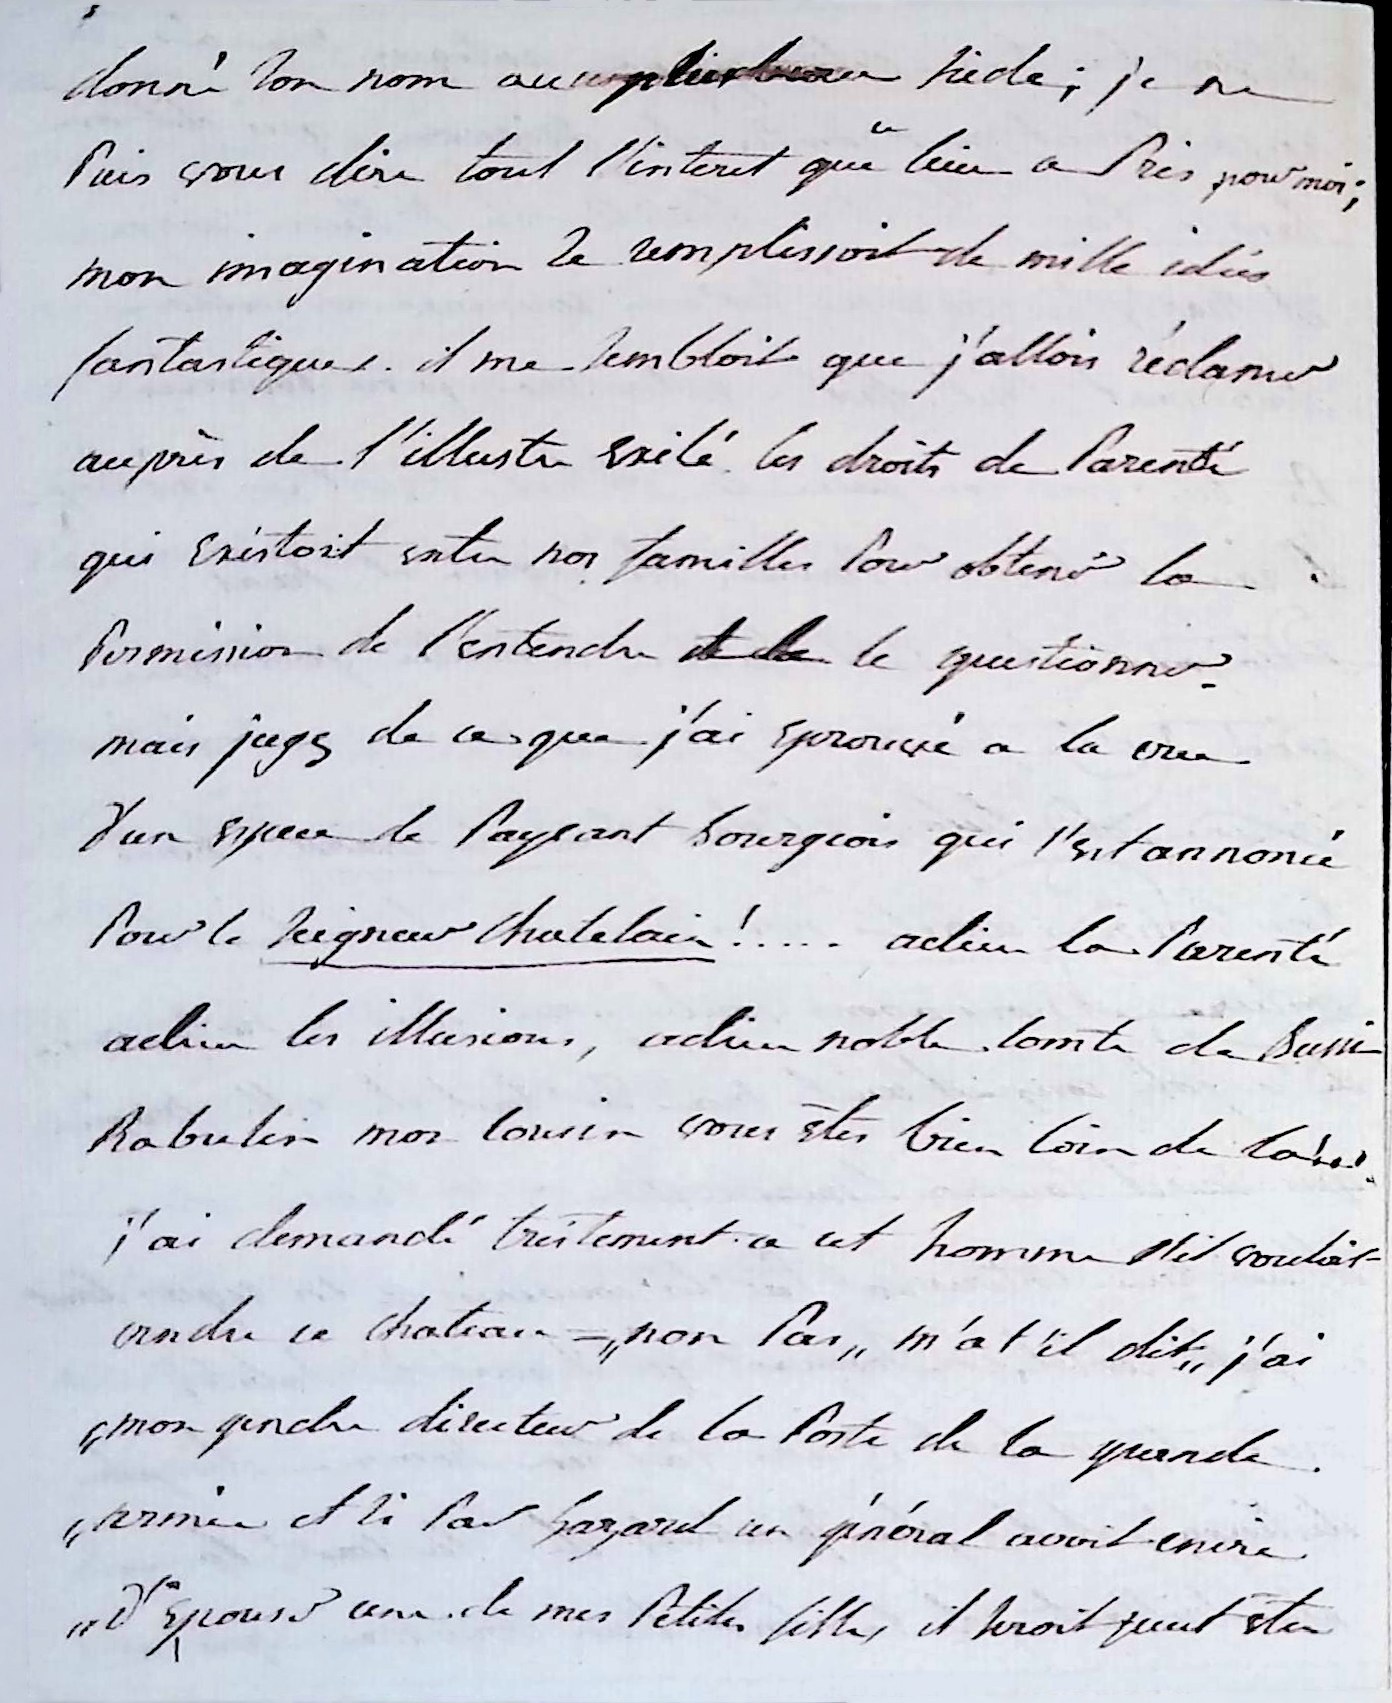 donné son nom au plus beau siecle; je ne
Puis vous dire tout l'interet que ce lieu a Pris pour moi;
mon imagination se remplissoit de mille idées
fantastiques. il me sembloit que j'allois réclamer
auprès de l'illustre exilé les droits de Parenté
qui existoit entre nos familles Pour obtenir la
Permission de l'entendre et de le questionner.
mais jugez de ce que j'ai eprouvé a la vue
d'un espece de Paysant bourgeois qui s'est annoncé
Pour le seigneur Chatelain!..... adieu la Parenté
adieu les illusions, adieu noble comte de Bussi
Rabutin mon cousin vous êtes bien loin de là!...
j'ai demandé tristement a cet homme s'il vouloit
vendre ce chateau = „non Pas„ m'a t'il dit „j'ai
„mon gendre directeur de la Poste de la grande
„armée et si Par hazard un général avoit envie
„d'epouser une de mes Petites filles il seroit peut être